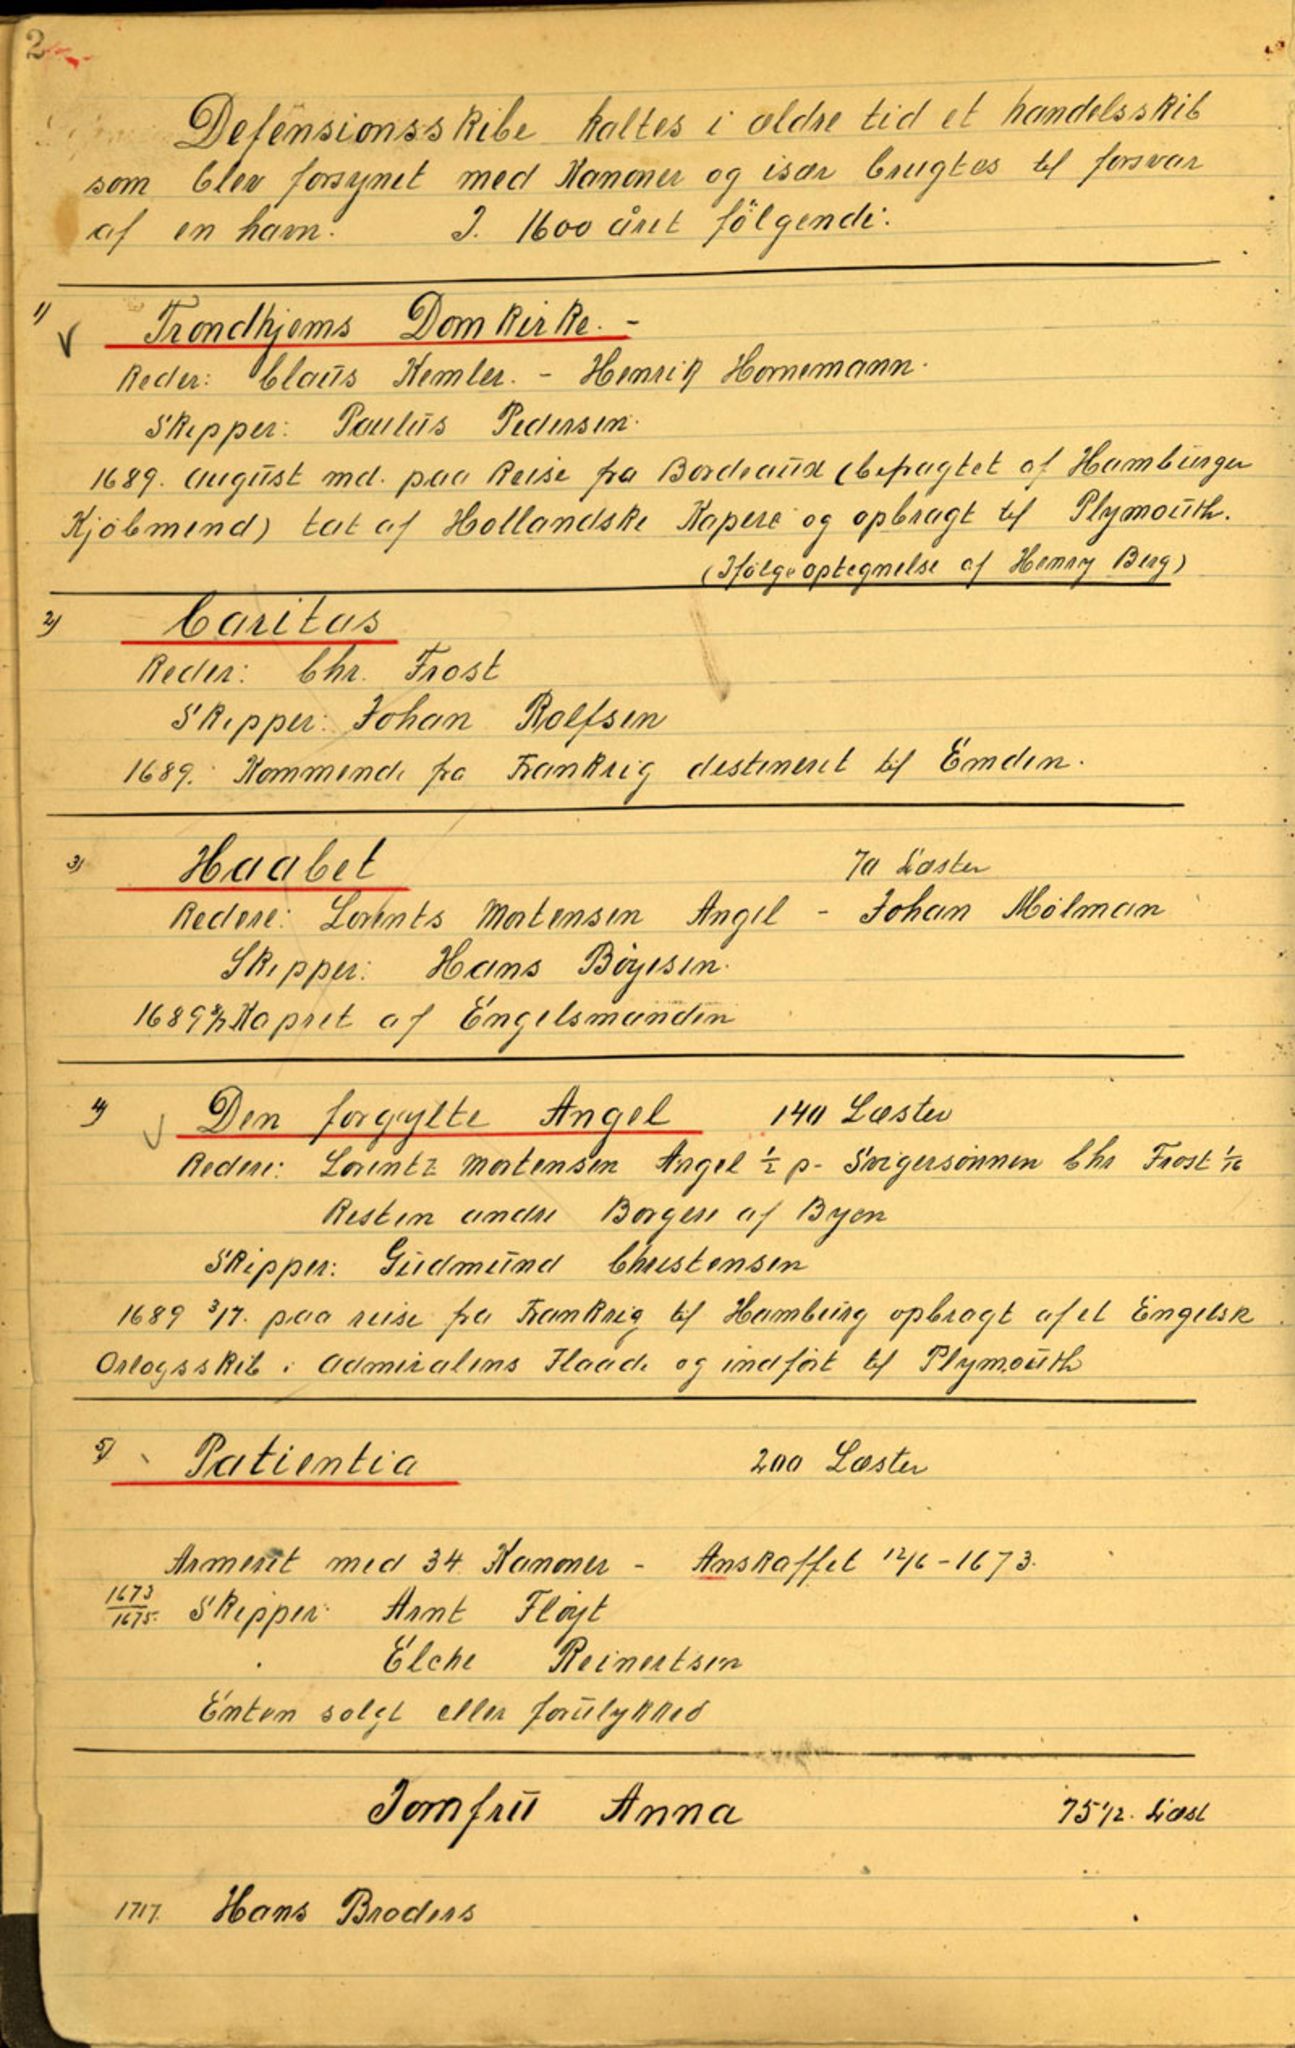 2
Defensionsskibe kaltes i ældre tid et handelsskib
som blev forsynet med Kanoner og især brugtes til forsvar
af en havn. I. 1600 året følgende:
1) Trondhjems Domkirke. -
Reder: Claus Kemler. - Henrik Hornemann.
Skipper: Paulus Pedersen.
1689. august md. paa Reise fra Bordeaux (befragtet af Hamburger
Kjøbmend) tat af Hollandske Kapere og opbragt til Plymouth.
(Ifølge optegnelse af Henry Berg)
2) Caritas
Reder: Chr. Frost
Skipper: Johan Rolfsen
1689. Kommende fra Frankrig destineret til Emden.
3) Haabet 70 Læster
Redere: Lorents Mortensen Angel - Johan Mølman
Skipper: Hans Böyesen.
1689 Kapret af Engelsmanden
4) Den forgylte Angel 140 Læster
Redere: Lorentz Mortensen Angel ½ p - Svigersønnen Chr Frost 1/16
Resten andre Borgere af Byen
Skipper: Gudmund Christensen
1689 3/7. paa reise fra Frankrig til Hamburg opbragt af et Engelsk
Orlogsskib i Admiralens Flaade og indført til Plymouth
5) Patientia 200 Læster
Armeret med 34 Kanoner - Anskaffet 12/6-1673.
1673/1675. Skipper: Arnt Fløyt
Elche Reinertsen
Enten solgt eller forulykked
Jomfru Anna 75 1/2. Læst
1717. Hans Broders